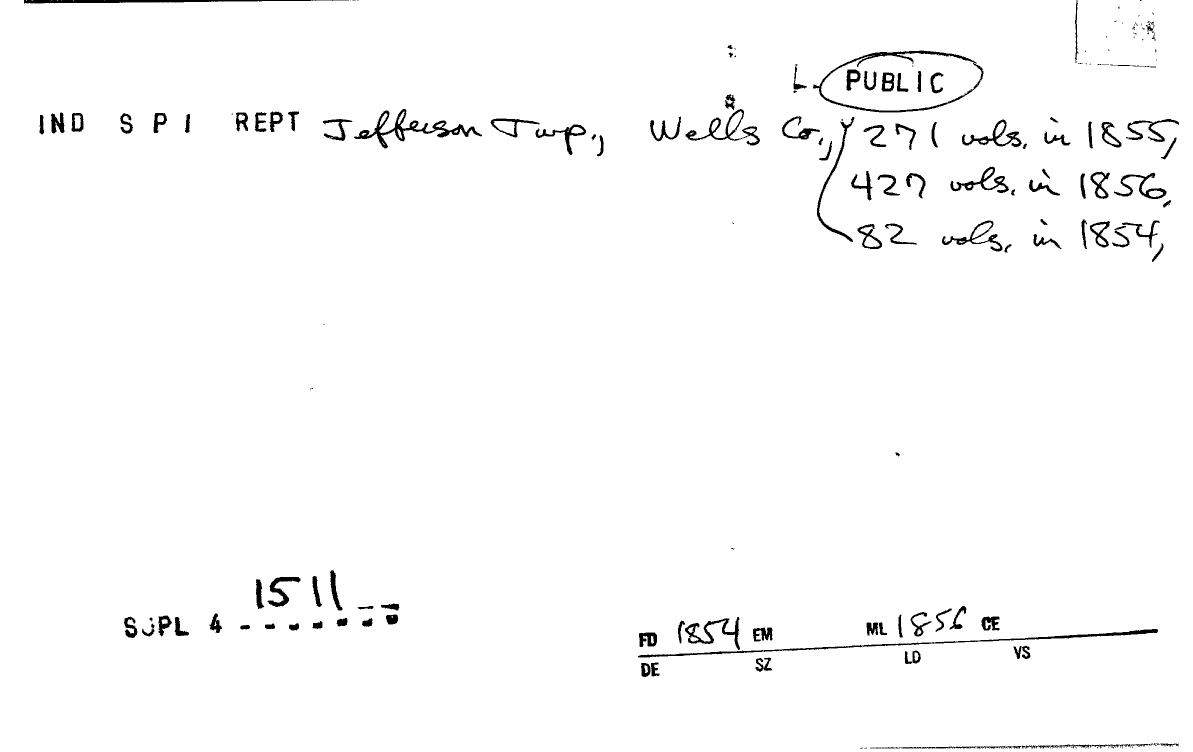 L. PUBLIC
IND S P I REPT Jefferson Twp., Wells Co., 271 vols. in 1855,
427 vols. in 1856,
82 vols. in 1854,
1511
SUPL 4 - - - - - - -
FD 1854 EM ML 1856 CE
DE SZ LD VS